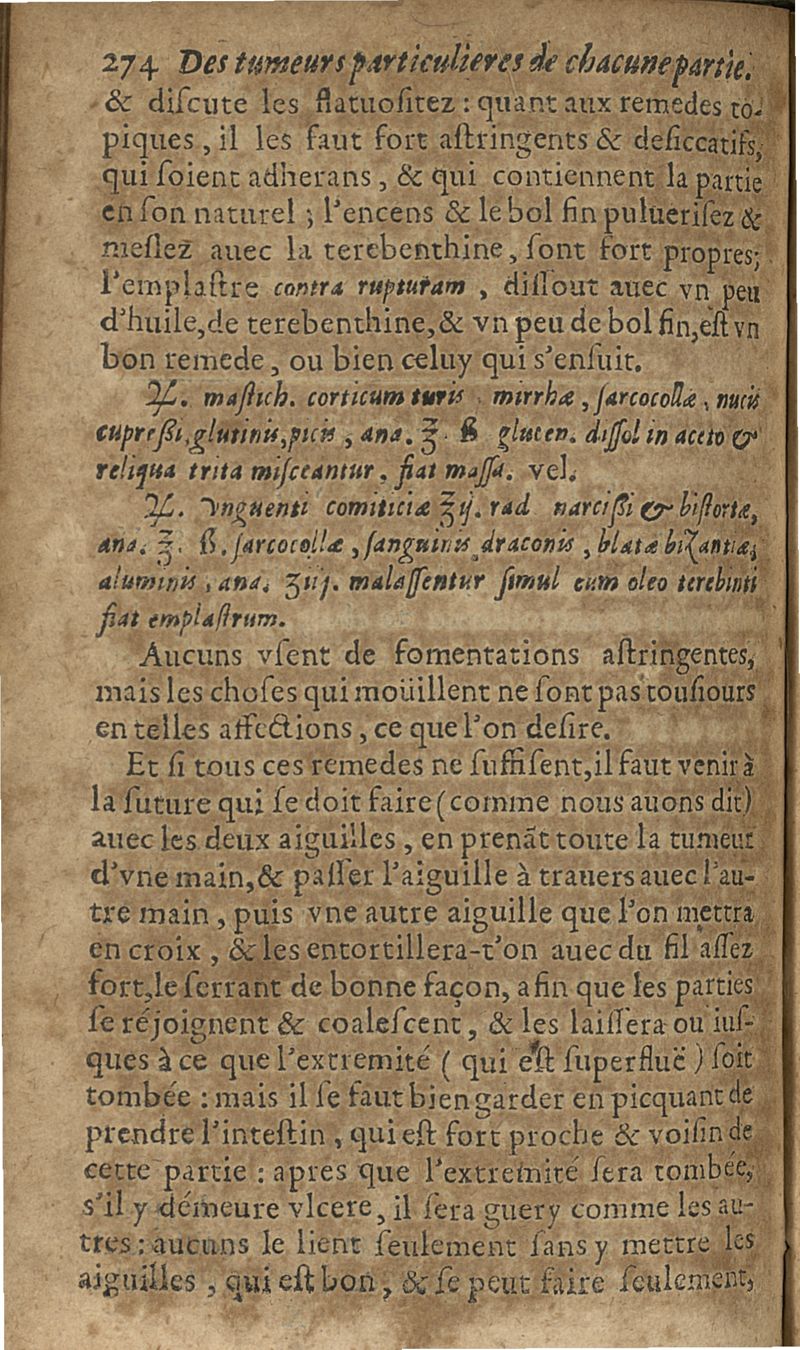 274 Des tumeurs particulieres de chacune partie.
& diſcute les flatuoſitez : quant aux remedes to-
piques , il les faut fort aſtringents & deſiccatifs,
qui ſoient adherans , & qui contiennent la partie
en ſon naturel ; l'encens & le bol fin pulueriſez &
meſlez auec la terebenthine, ſont fort propres;
l'emplaſtre contra rupturam , diſſout auec vn peu
d'huile,de terebenthine,& vn peu de bol fin,eſt vn
bon remede , ou bien celuy qui s'enſuit.
♃. maſtich. corticum turis mirrhæ , ſarcocollæ , nucis
cupreßi,glutinis,picis , ana. ℥. ß gluten. diſſol in aceto &
reliqua trita miſceantur , fiat maſſa. vel.
♃. Vnguenti comiticiæ ℥ij. rad narcißi & biſtortæ,
ana. ℥. ß. ſarcocollæ , ſanguinis draconis , blatæ biZantiæ,
aluminis , ana. ʒiij. malaſſentur ſimul cum oleo terebinti
fiat emplaſtrum.
Aucuns vſent de fomentations aſtringentes,
mais les choſes qui moüillent ne ſont pas touſiours
en telles affections , ce que l'on deſire.
Et ſi tous ces remedes ne ſuffiſent,il faut venir à
la ſuture qui ſe doit faire (comme nous auons dit)
auec les deux aiguilles , en prenāt toute la tumeur
d'vne main,& paſſer l'aiguille à trauers auec l'au-
tre main , puis vne autre aiguille que l'on mettra
en croix , & les entortillera-t'on auec du fil aſſez
fort,le ſerrant de bonne façon, afin que les parties
ſe réjoignent & coaleſcent , & les laiſſera ou iuſ-
ques à ce que l'extremité ( qui eſt ſuperfluë ) ſoit
tombée : mais il ſe faut bien garder en picquant de
prendre l'inteſtin , qui eſt fort proche & voiſin de
cette partie : apres que l'extremité ſera tombée,
s'il y démeure vlcere, il ſera guery comme les au-
tres : aucuns le lient ſeulement ſans y mettre les
aiguilles , qui eſt bon , & ſe peut faire ſeulement,